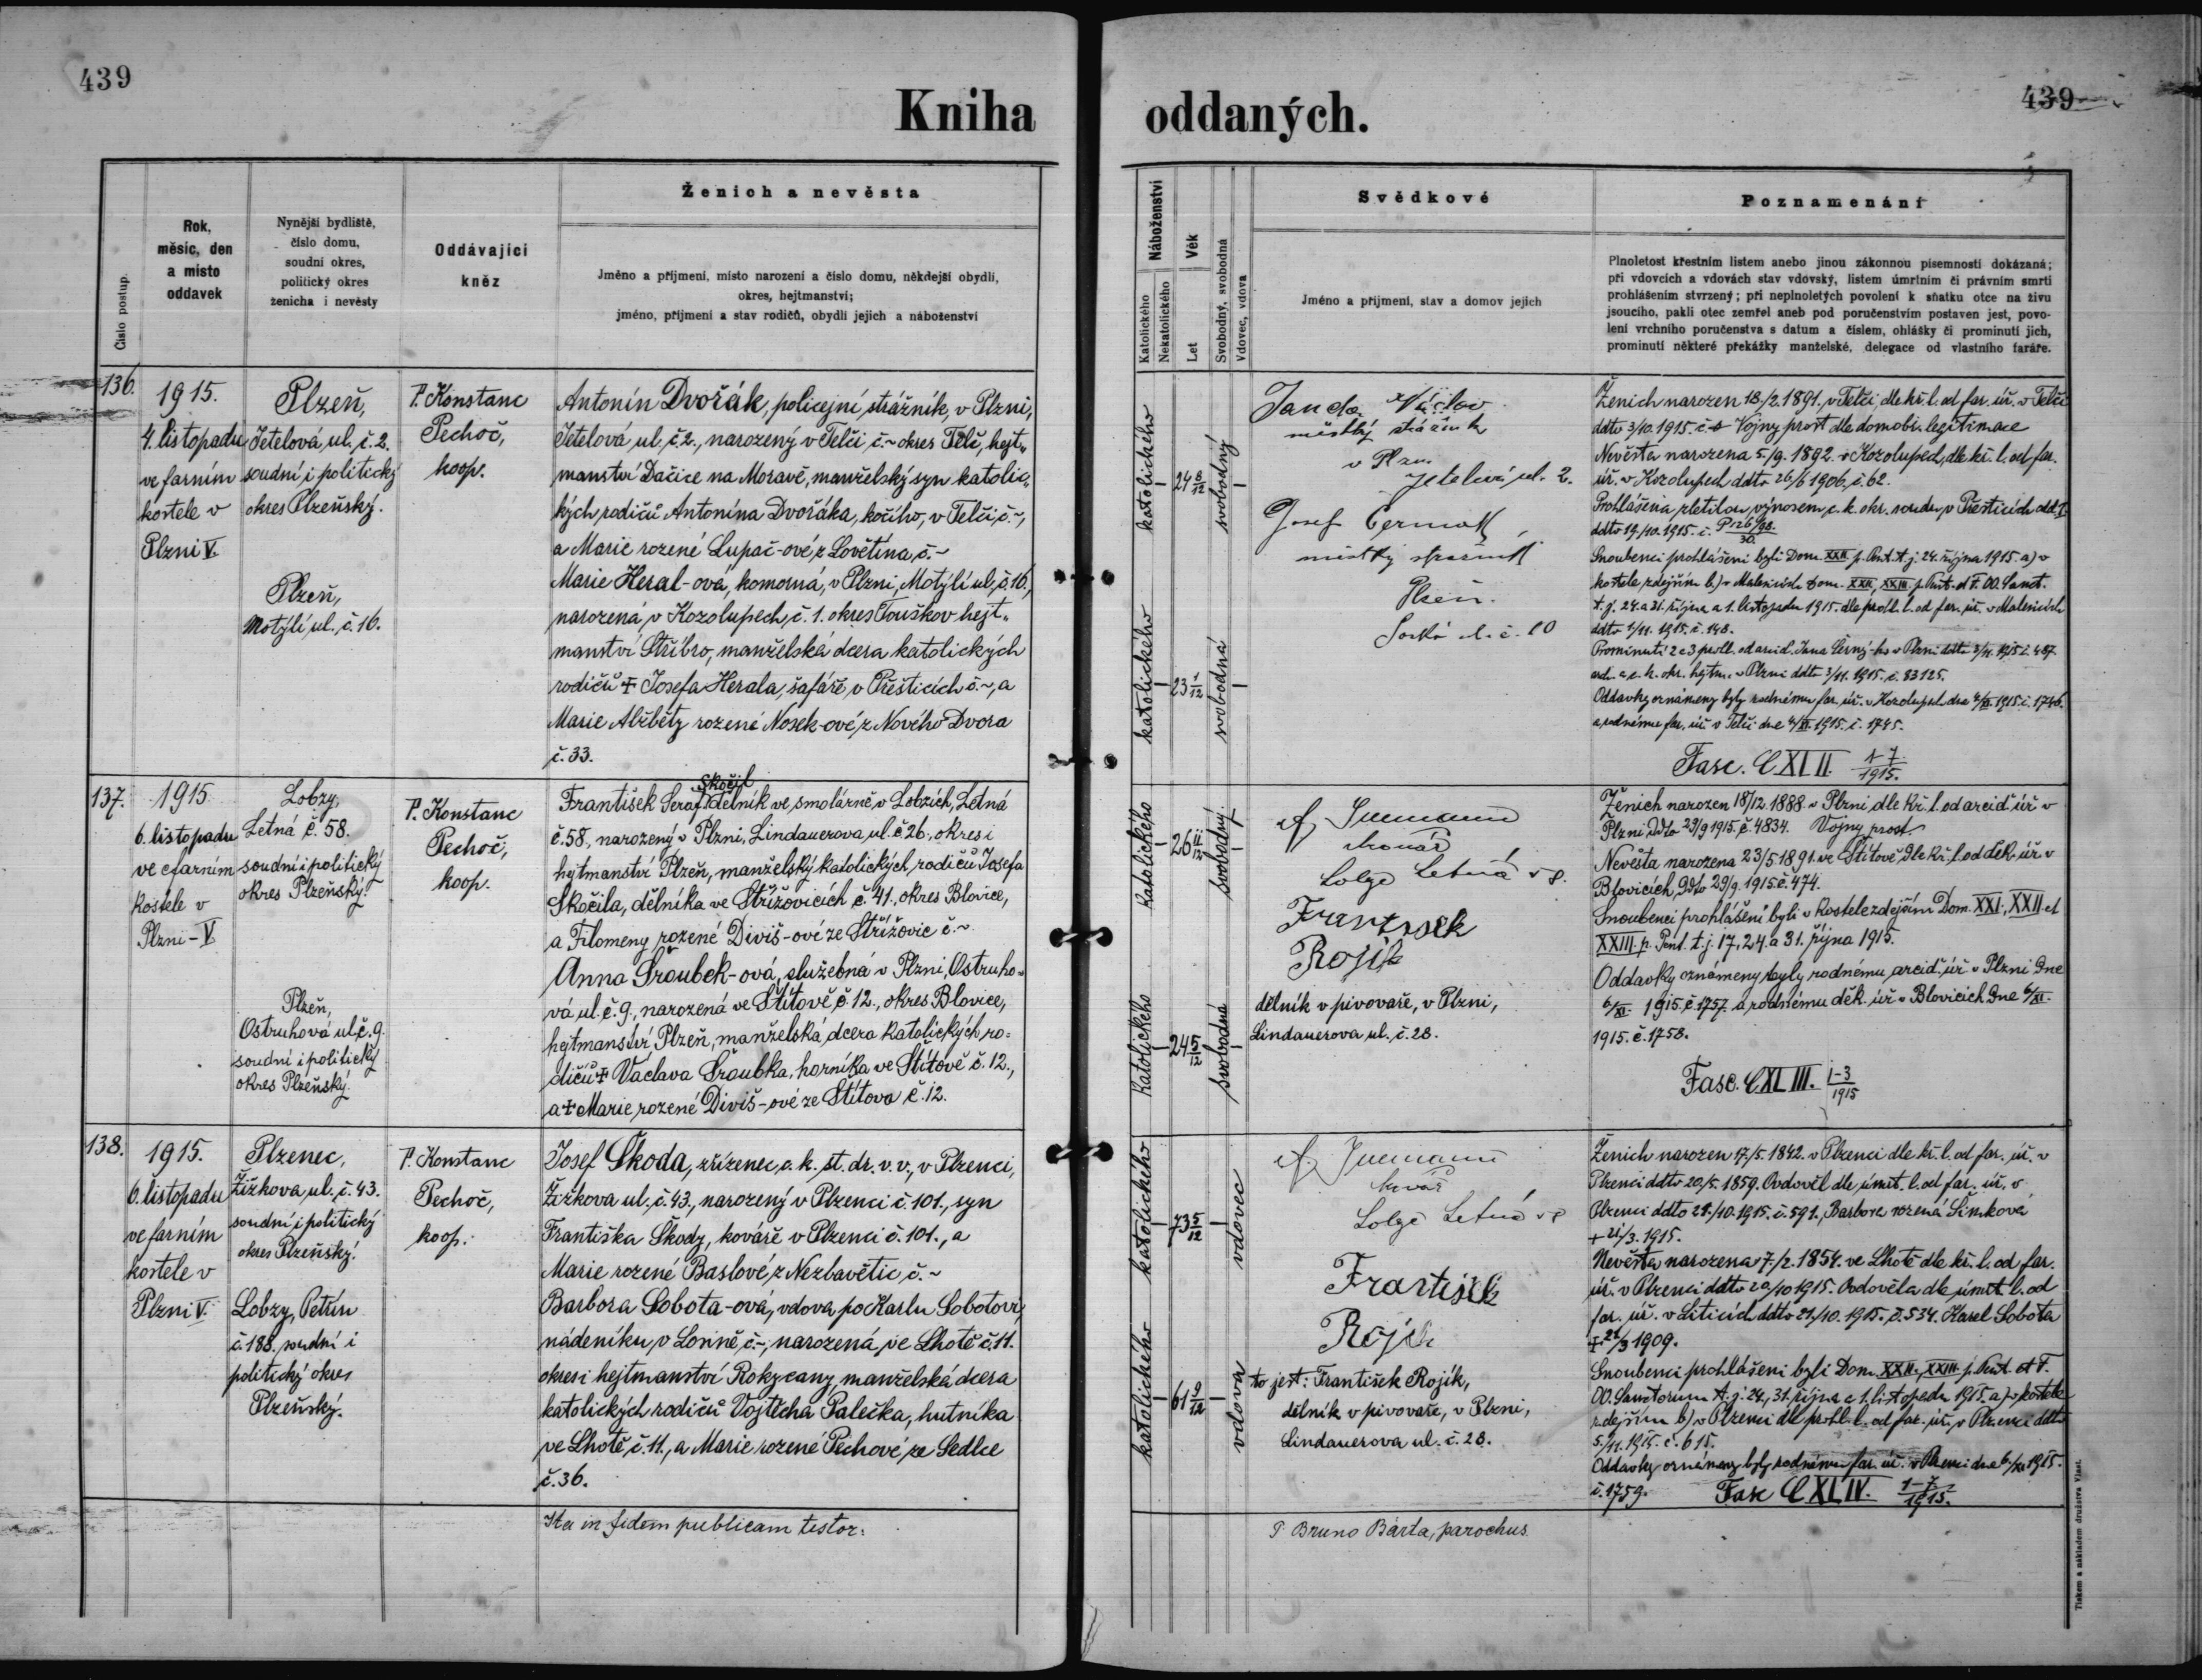 439
439
Kniha oddaných.
Číslo postup.
Rok,
měsíc, den
a místo
oddavek
Nynější bydliště,
číslo domu,
soudní okres,
politický okres
ženicha i nevěsty
Oddávající
kněz
Ženich a nevěsta
Jméno a příjmení, místo narození a číslo domu, někdejší obydlí,
okres, hejtmanství;
jméno, příjmení a stav rodičů, obydlí jejich a náboženství
Náboženství
Katolického
Nekatolického
Věk
Let
Svobodný, svobodná
Vdovec, vdova
Svědkové
Jméno a příjmení, stav a domov jejich
Poznamenání
Plnoletost křestním listem anebo jinou zákonnou písemností dokázaná;
při vdovcích a vdovách stav vdovský, listem úmrtním či právním smrti
prohlášením stvrzený; při neplnoletých povolení k sňatku otce na živu
jsoucího, pakli otec zemřel aneb pod poručenstvím postaven jest, povo-
lení vrchního poručenstva s datum a číslem, ohlášky či prominutí jich,
prominutí některé překážky manželské, delegace od vlastního faráře.
136.
1915.
4. listopadu
ve farním
kostele v
Plzni V.
Plzeň,
Jetelová ul. č. 2.
soudní i politický
okres Plzeňský.
Plzeň,
Motýlí ul. č. 16.
P. Konstanc
Pechoč,
koop.
Antonín Dvořák, policejní strážník, v Plzni,
Jetelová ul. č. 2., narozený v Telči č. ~ okres Telč, hejt-
manství Dačice na Moravě, manželský syn katolic-
kých rodičů Antonína Dvořáka, kočího, v Telči č. ~,
a Marie rozené Lupač-ové, z Lovětína č. ~
Marie Heral-ová, komorná, v Plzni, Motýlí ul. č. 16,
narozená v Kozolupech, č. 1. okres Touškov hejt-
manství Stříbro, manželská dcera katolických
rodičů + Josefa Herala, šafáře, v Přešticích č. ~, a
Marie Alžběty rozené Nosek-ové, z Nového Dvora
č. 33.
katolického
24 8/12
svobodný
katolického
23 1/12
svobodná
Janda Václav
městský strážník
v Plzni
Jetelová ul. 2.
Josef Čermák
městský strážník
Plzeň.
č. 10
Ženich narozen 18./2. 1891. v Telči dle kř. l. od far. úř. v Telči
ddto 3/10. 1915. Vojny prost dle domobr. legitimace
Nevěsta narozena 5./9. 1892. v Kozolupech, dle kř. l. od far.
úř. v Kozolupech ddto 26/6 1906, č. 62.
Prohlášena zletilou výnosem c. k. okr. soudu v Přešticích odd. I.
ddto 19/10. 1915. č. P 126/98 30.
Snoubenci prohlášeni byli Dom. XXII. p. Pent. t. j. 24. října 1915 a) v
kostele zdejším b) v Malesicích Dom. XXII, XXIII. p. Pent. et F. OO. Sanct.
t. j. 24. a 31. října a 1. listopadu 1915. dle prohl. l. od far. úř. v Malesicích
ddto 1/11. 1915. č. 148.
Prominutí 2 a 3 prohl. od arcid. Jana Černý-ho v Plzni ddto 3/11. 1915 č. 487
a c. k. okr. hejtm. v Plzni ddto 3/11. 1915. č. 83125.
Oddavky oznámeny byly rodnému far. úř. v Kozolupech dne 4/XI. 1915. č. 1746.
a rodnému far. úř. v Telči dne 4/XI. 1915. č. 1745.
Fasc. CXLII. 1-7/1915.
137.
1915
6. listopadu
ve farním
kostele v
Plzni - V
Lobzy,
Letná č. 58.
soudní i politický
okres Plzeňský.
Plzeň,
Ostruhová ul. č. 9.
soudní i politický
okres Plzeňský.
P. Konstanc
Pechoč,
koop.
Skočil
František Seraf. dělník ve smolárně v Lobzích, Letná
č. 58, narozený v Plzni, Lindauerova ul. č. 26., okres i
hejtmanství Plzeň, manželský katolických rodičů Josefa
Skočila, dělníka ve Střížovicích č. 41., okres Blovice,
a Filomeny rozené Diviš-ové ze Střížovic č. ~
Anna Šroubek-ová, služebná v Plzni, Ostruho-
vá ul. č. 9., narozená ve Štítově č. 12., okres Blovice,
hejtmanství Plzeň, manželská dcera katolických ro-
dičů + Václava Šroubka, horníka ve Štítově č. 12.,
a + Marie rozené Diviš-ové ze Štítova č. 12.
katolického
26 11/12
svobodný
katolického
24 5/12
svobodná
Letná
František
Rojík
dělník v pivovaře, v Plzni,
Lindauerova ul. č. 28.
Ženich narozen 18/12. 1888 v Plzni dle kř. l. od arcid. úř. v
Plzni ddto 23/9 1915. č. 4834. Vojny prost
Nevěsta narozena 23/5 1891. ve Štítově dle kř. l. od děk. úř. v
Blovicích ddto 29/9. 1915 č. 474.
Snoubenci prohlášeni byli v kostele zdejším Dom. XXI., XXII et
XXIII p. Pent. t. j. 17., 24. a 31. října 1915.
Oddavky oznámeny byly rodnému arcid. úř. v Plzni dne
6/XI. 1915. č. 1757. a rodnému děk. úř. v Blovicích dne 6/XI.
1915. č. 1758.
Fasc. CXLIII. 1-3/1915
138.
1915.
6. listopadu
ve farním
kostele v
Plzni V.
Plzenec,
Žižkova ul. č. 43.
soudní i politický
okres Plzeňský.
Lobzy, Petřín
č. 188. soudní i
politický okres
Plzeňský.
P. Konstanc
Pechoč,
koop.
Josef Škoda, zřízenec c. k. st. dr. v. v., v Plzenci,
Žižkova ul. č. 43., narozený v Plzenci č. 101., syn
Františka Škody, kováře v Plzenci č. 101., a
Marie rozené Baslové, z Nezbavětic č. ~
Barbora Sobota-ová, vdova po Karlu Sobotovi,
nádeníku v č. ~, narozená ve Lhotě č. 11.
okres i hejtmanství Rokycany, manželská dcera
katolických rodičů Vojtěcha Palečka, hutníka
ve Lhotě, č. 11., a Marie rozené Pechové, ze Sedlce
č. 36.
katolického
73 5/12
vdovec
katolického
61 9/12
vdova
Letná
František
Rojík
to jest: František Rojík,
dělník v pivovaře, v Plzni,
Lindauerova ul. č. 28.
Ženich narozen 17./5. 1842. v Plzenci dle kř. l. od far. úř. v
Plzenci ddto 20/5. 1859. Ovdověl dle úmrt. l. od far. úř. v
Plzenci ddto 21./10. 1915. č. 591., Barbora rozená Šimková
+ 21/3. 1915.
Nevěsta narozena 7./2. 1854. ve Lhotě dle kř. l. od far.
úř. v Plzenci ddto 20/10 1915. Ovdověla dle úmrt. l. od
far. úř. v Liticích ddto 21./10. 1915. č. 534. Karel Sobota
+ 21/3 1909.
Snoubenci prohlášeni byli Dom. XXII., XXIII. p. Pent. et F.
OO. Sanctorum t. j. 24., 31. října a 1. listopadu 1915. a) v kostele
zdejším b) v Plzenci dle prohl. l. od far. úř. v Plzenci ddto
5./11. 1915. č. 615.
Oddavky oznámeny byly rodnému far. úř. v Plzenci dne 6./XI. 1915.
č. 1759. Fasc CXLIV. 1-7/1915.
Ita in fidem publicam testor:
P. Bruno Bárta, parochus
Tiskem a nákladem družstva Vlast.